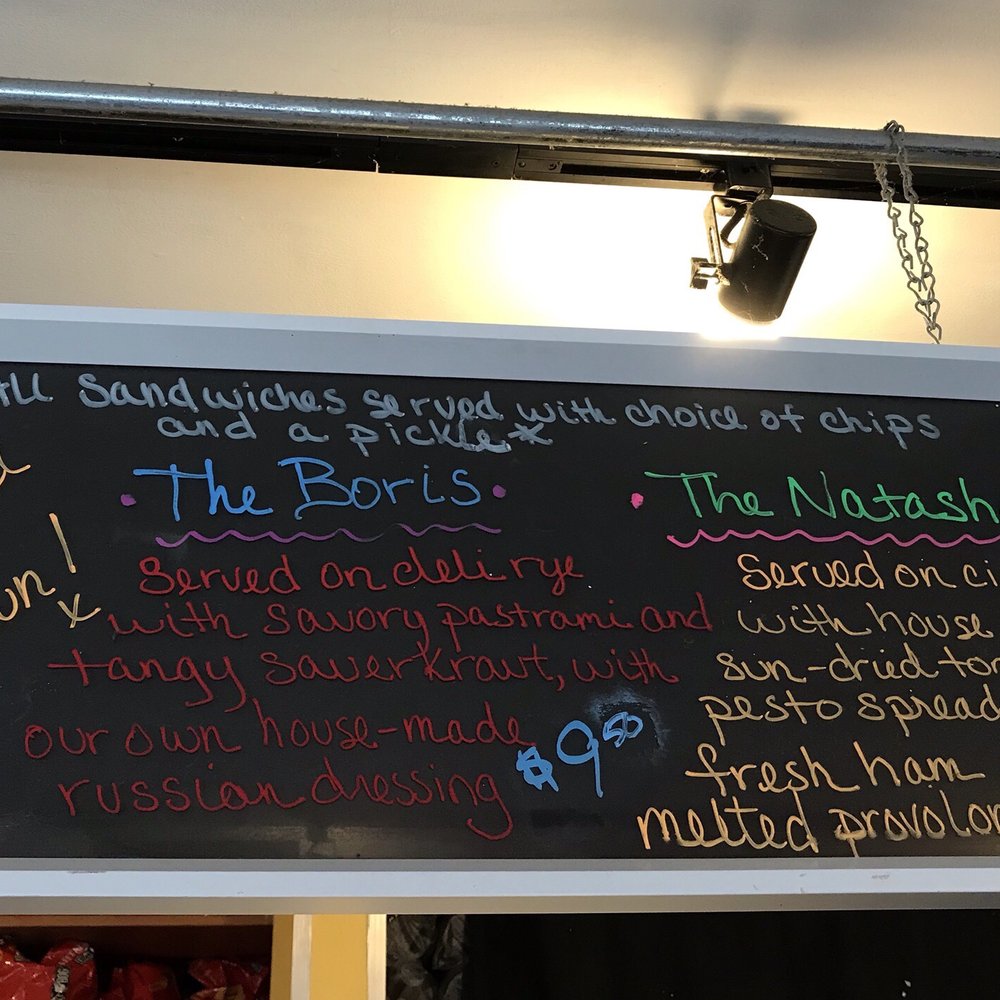 All Sandwiches served with choice of chips
and a pickle*
The Boris
Served on deli rye
with savory pastrami and
tangy sauerkraut, with
our own house-made
russian dressing
$9.50
The Natash
Served on ci
with house
sun-dried tom
pesto spread
fresh ham
melted provolon
wn!